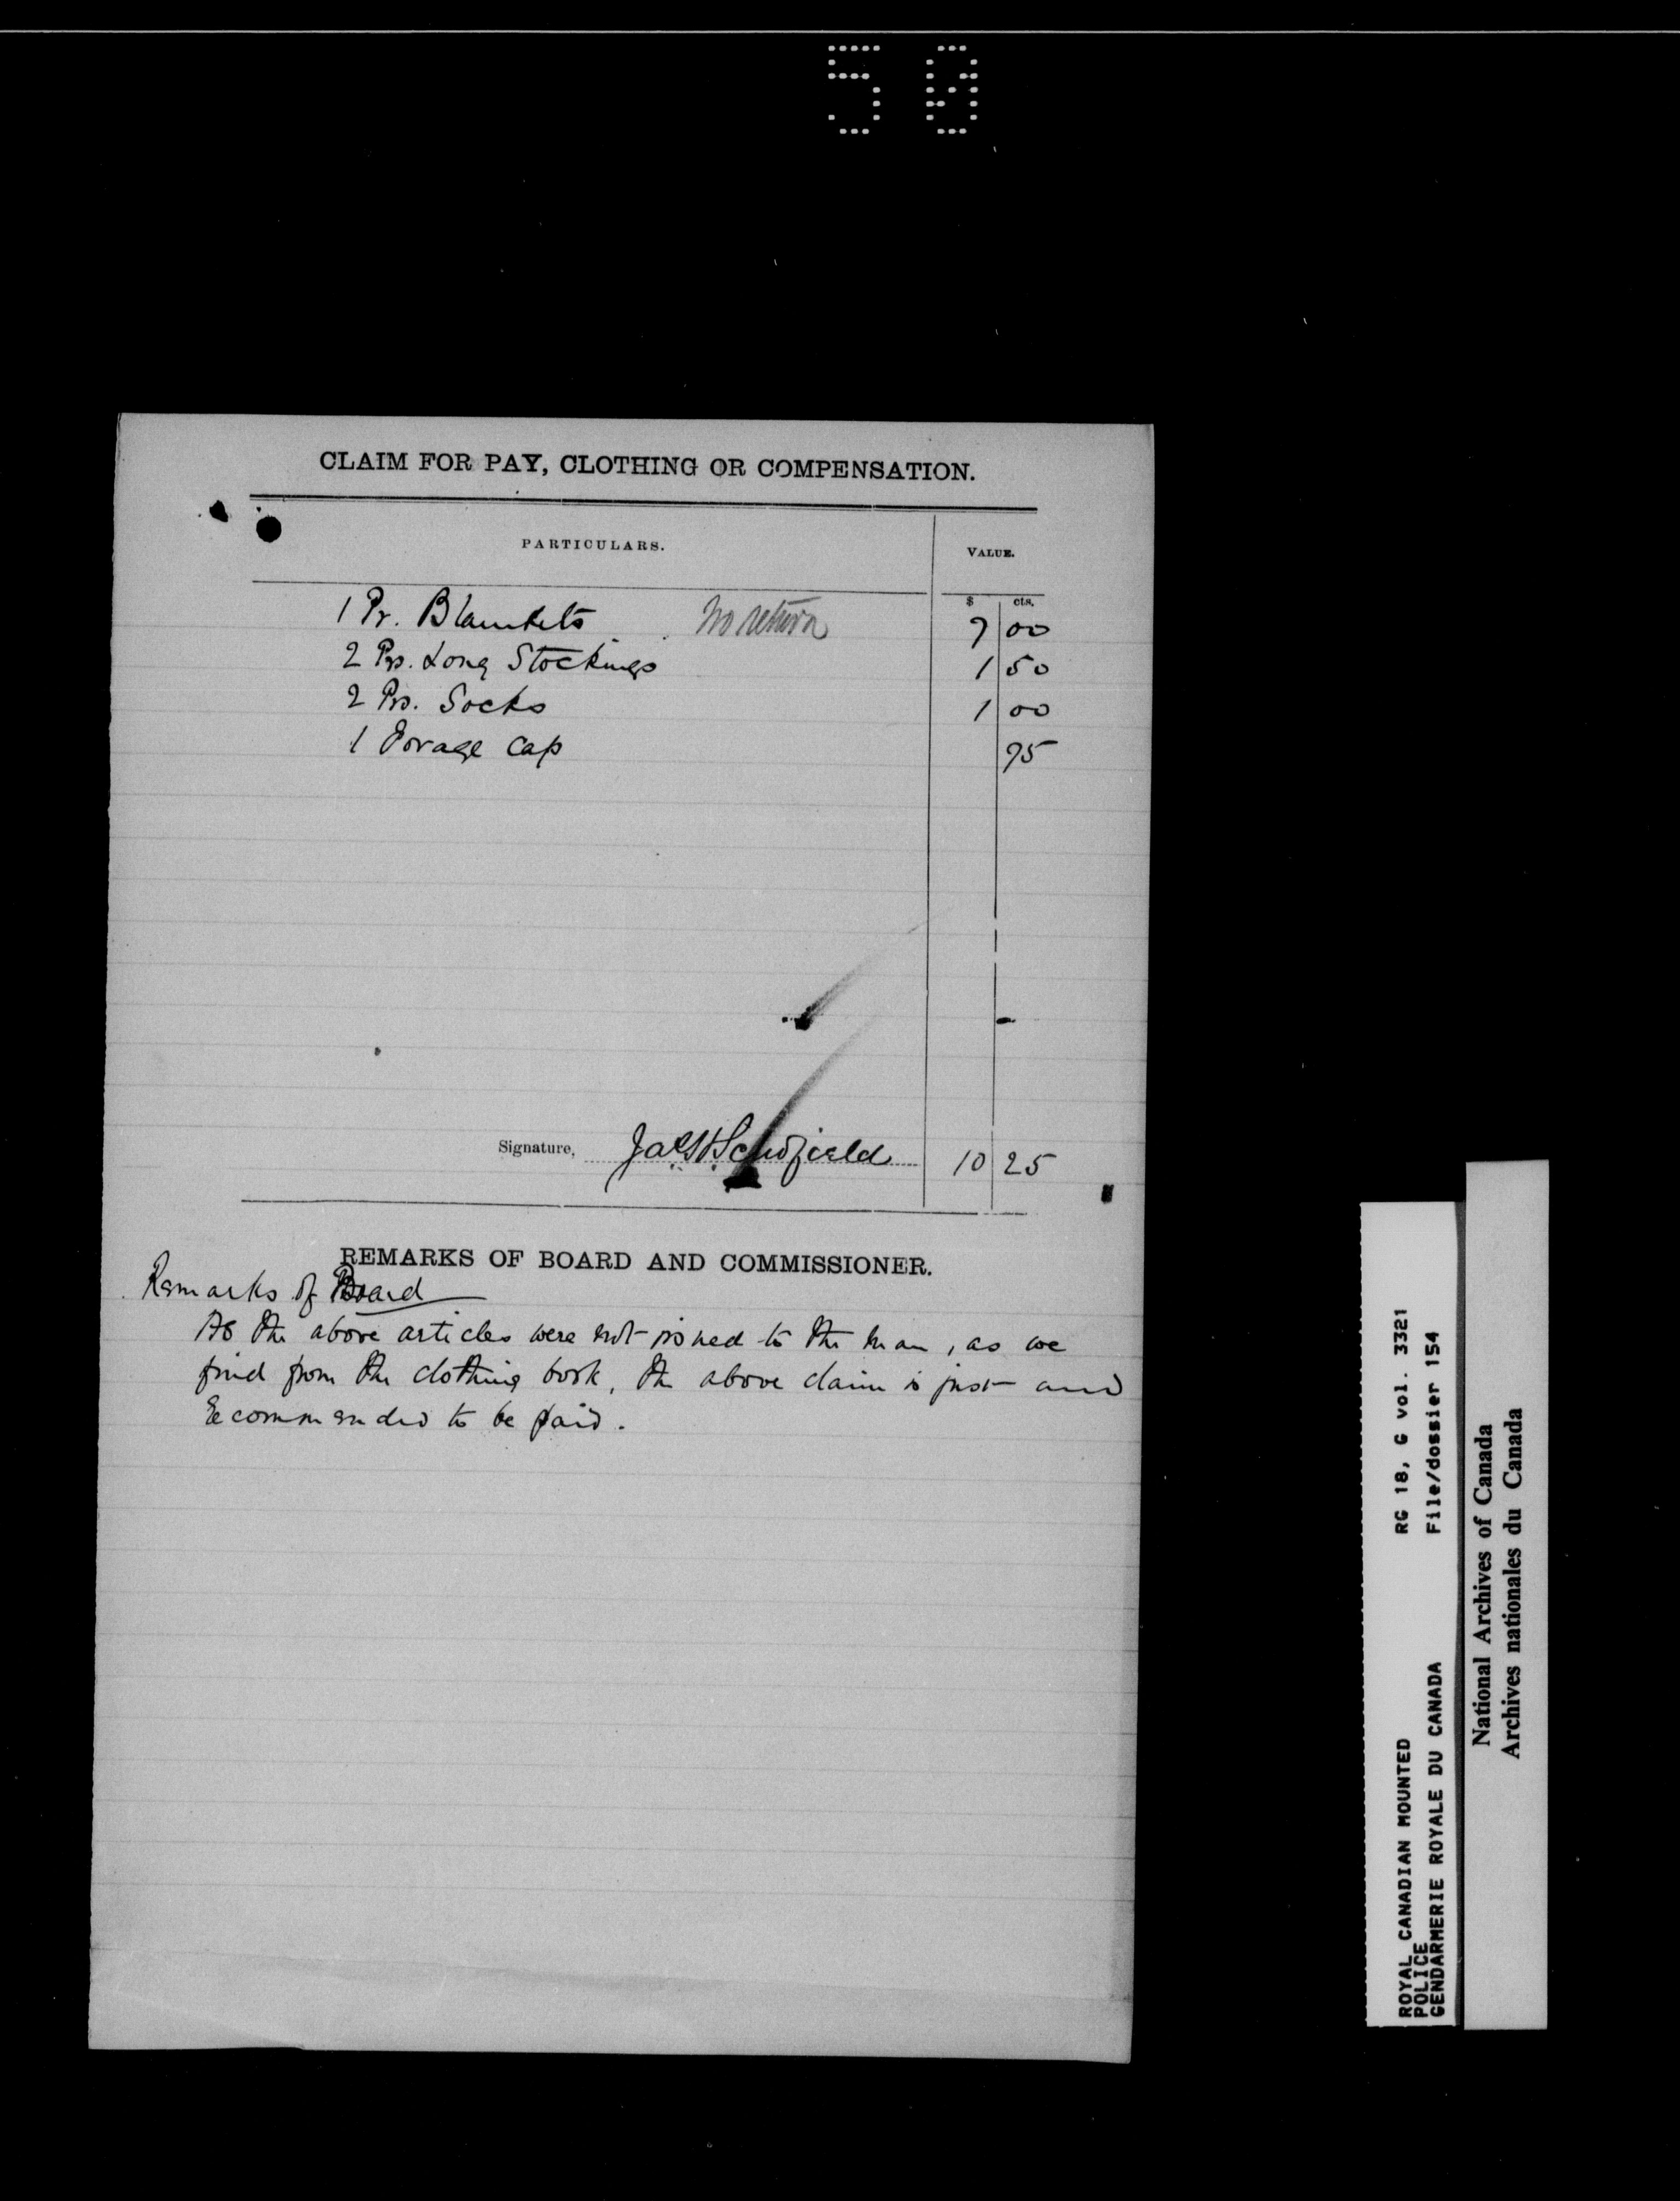 50
CLAIM FOR PAY, CLOTHING OR COMPENSATION.
PARTICULARS. VALUE.
$ cts.
1 Pr. Blankets No return 7 00
2 Prs. Long Stockings 1 50
2 Prs. Socks 1 00
1 Forage Cap 75
Signature, Jas. H. Schofield 10 25
REMARKS OF BOARD AND COMMISSIONER.
Remarks of Board
As the above articles were not issued to the man, as we
find from the clothing book, the above claim is just and
Recommended to be paid.
ROYAL CANADIAN MOUNTED RG 18, G vol. 3321
POLICE
GENDARMERIE ROYALE DU CANADA File/dossier 154
National Archives of Canada
Archives nationales du Canada